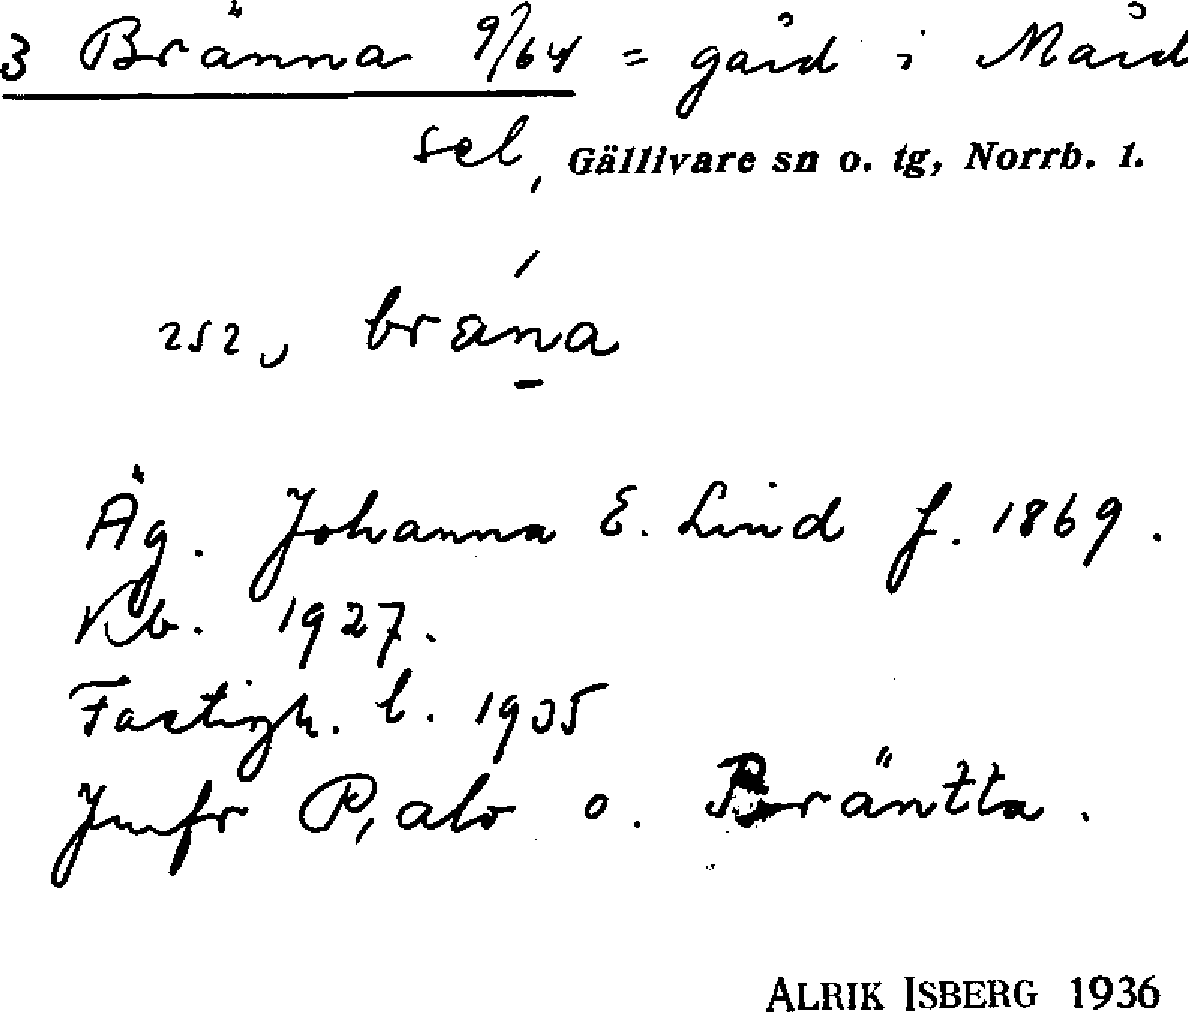 3 Bränna 9/64 = gård i Mård
sel, Gällivare sn o. tg, Norrb. l.
bräna
Äg. Johanna E. Lind f. 1869.
Kb. 1927.
Fastigh. l. 1935
Jmfr Palo o. Bräntta.
ALRIK ISBERG 1936